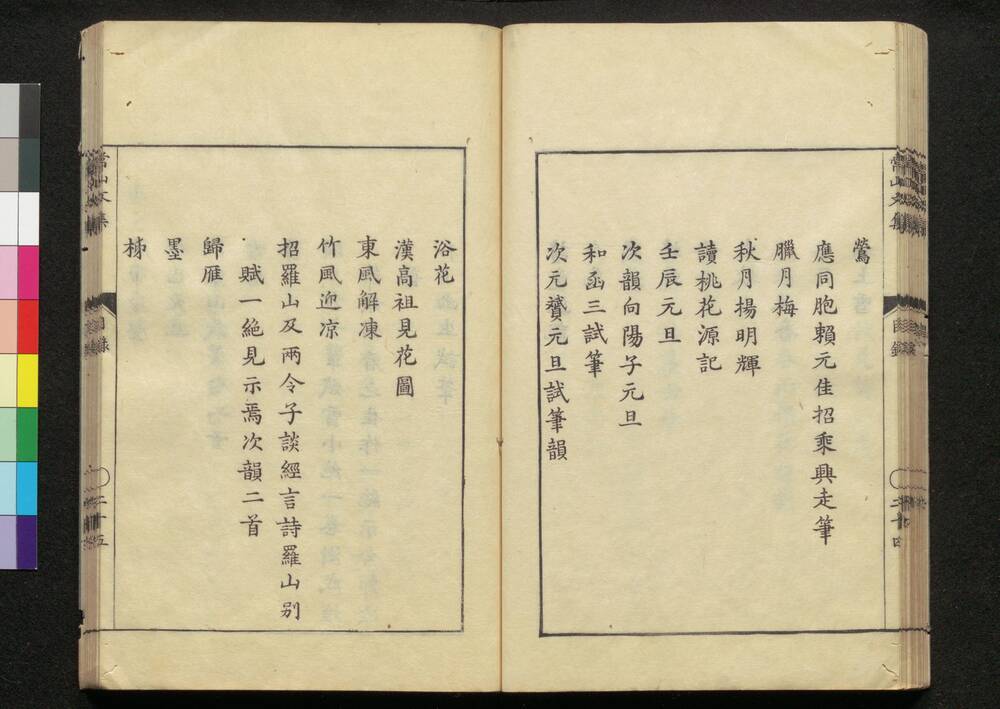 鶯
應同胞賴元佳招乘興走筆
臘月梅
秋月揚明輝
讀桃花源記
壬辰元旦
次韻向陽子元旦
和函三試筆
次元贇元旦試筆韻
浴花
漢高祖見花圖
東風解凍
竹風迎凉
招羅山及兩令子談經言詩羅山別
賦一絶見示焉次韻二首
歸雁
墨
梯
常山文集
目錄
二十四
常山文集
目錄
二十五